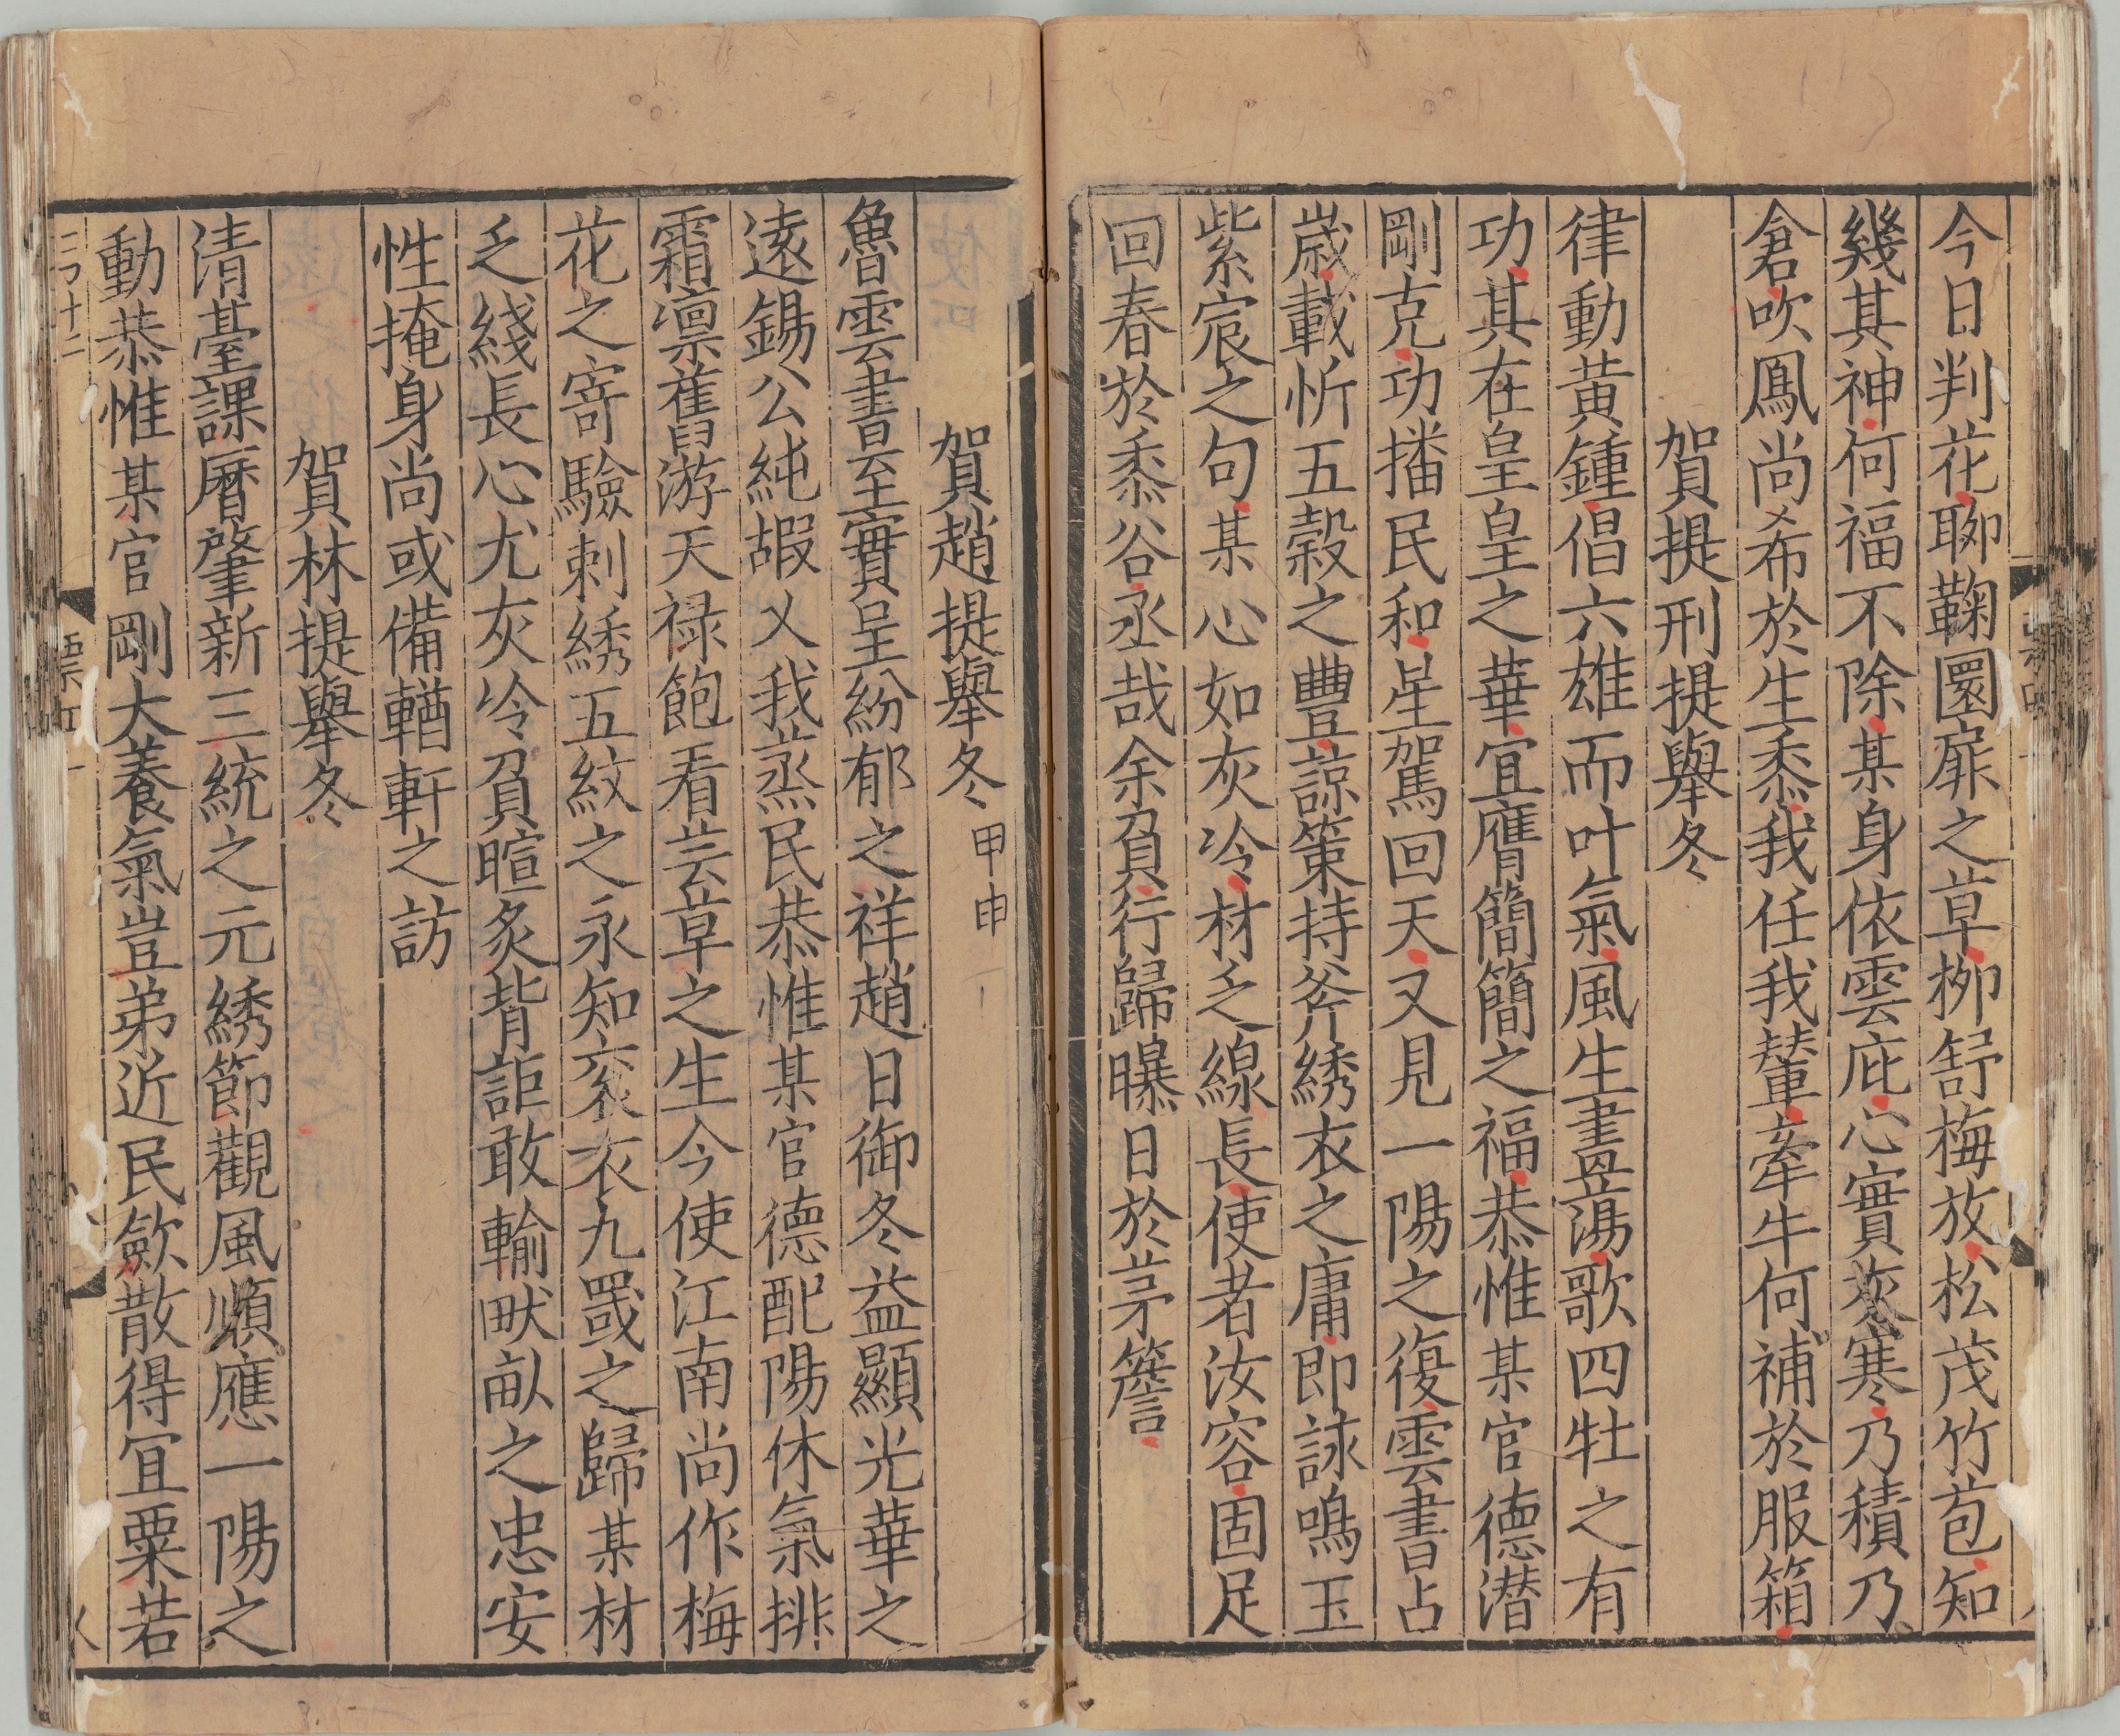 今日判花聊鞠圜扉之草栁舒梅放松茂竹苞知
幾其神何福不除某身依雲庇心實寒乃積乃
倉吹鳳尚希於生黍我任我輦牽牛何補於服箱
賀提刑提舉冬
律動黄鍾倡六雄而叶氣風生晝蕩歌四牡之有
功其在皇皇之華宜膺簡簡之福恭惟某官德潜
剛克功播民和星駕回天又見一陽之復雲書占
嵗載忻五榖之豐諒策持斧綉衣之庸即詠鳴玉
紫宸之句某心如灰冷材乏線長使者汝容固足
回春於黍谷丞哉余負行歸曝日於茅簷
賀趙提舉冬甲申
魯雲書至實呈紛郁之祥趙日御冬益顯光華之
逺錫公純嘏乂我蒸民恭惟某官德配陽休氣排
霜凛舊游天禄飽看芸草之生今使江南尚作梅
花之寄驗刺綉五紋之永知衮衣九罭之歸某材
乏綫長心尤灰冷負暄炙背詎敢輸畎畝之忠安
性掩身尚或備輶軒之訪
賀林提舉冬
清䑓課曆肇新三統之元綉節觀風順應一陽之
動恭惟某官剛大養氣豈弟近民歛散得宜粟若